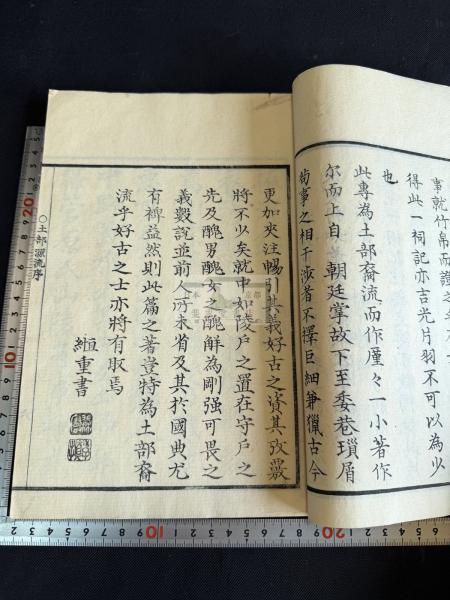 事就竹帛而證之
得此一祠記亦吉光片羽不可以為少
也
此專為土部裔流而作廑々一小著作
尔而上自 朝廷掌故下至委巷瑣屑
苟事之相干涉者不擇巨細兼獵古今
更加夾注暢引其義好古之資其攷覈
將不少矣就中如陵戶之置在守戶之
先及醜男醜女之醜解為剛强可畏之
義數說並前人所未省及其於國典尤
有裨益然則此篇之著豈特為土部裔
流乎好古之士亦將有取焉
重書
○土部源流序